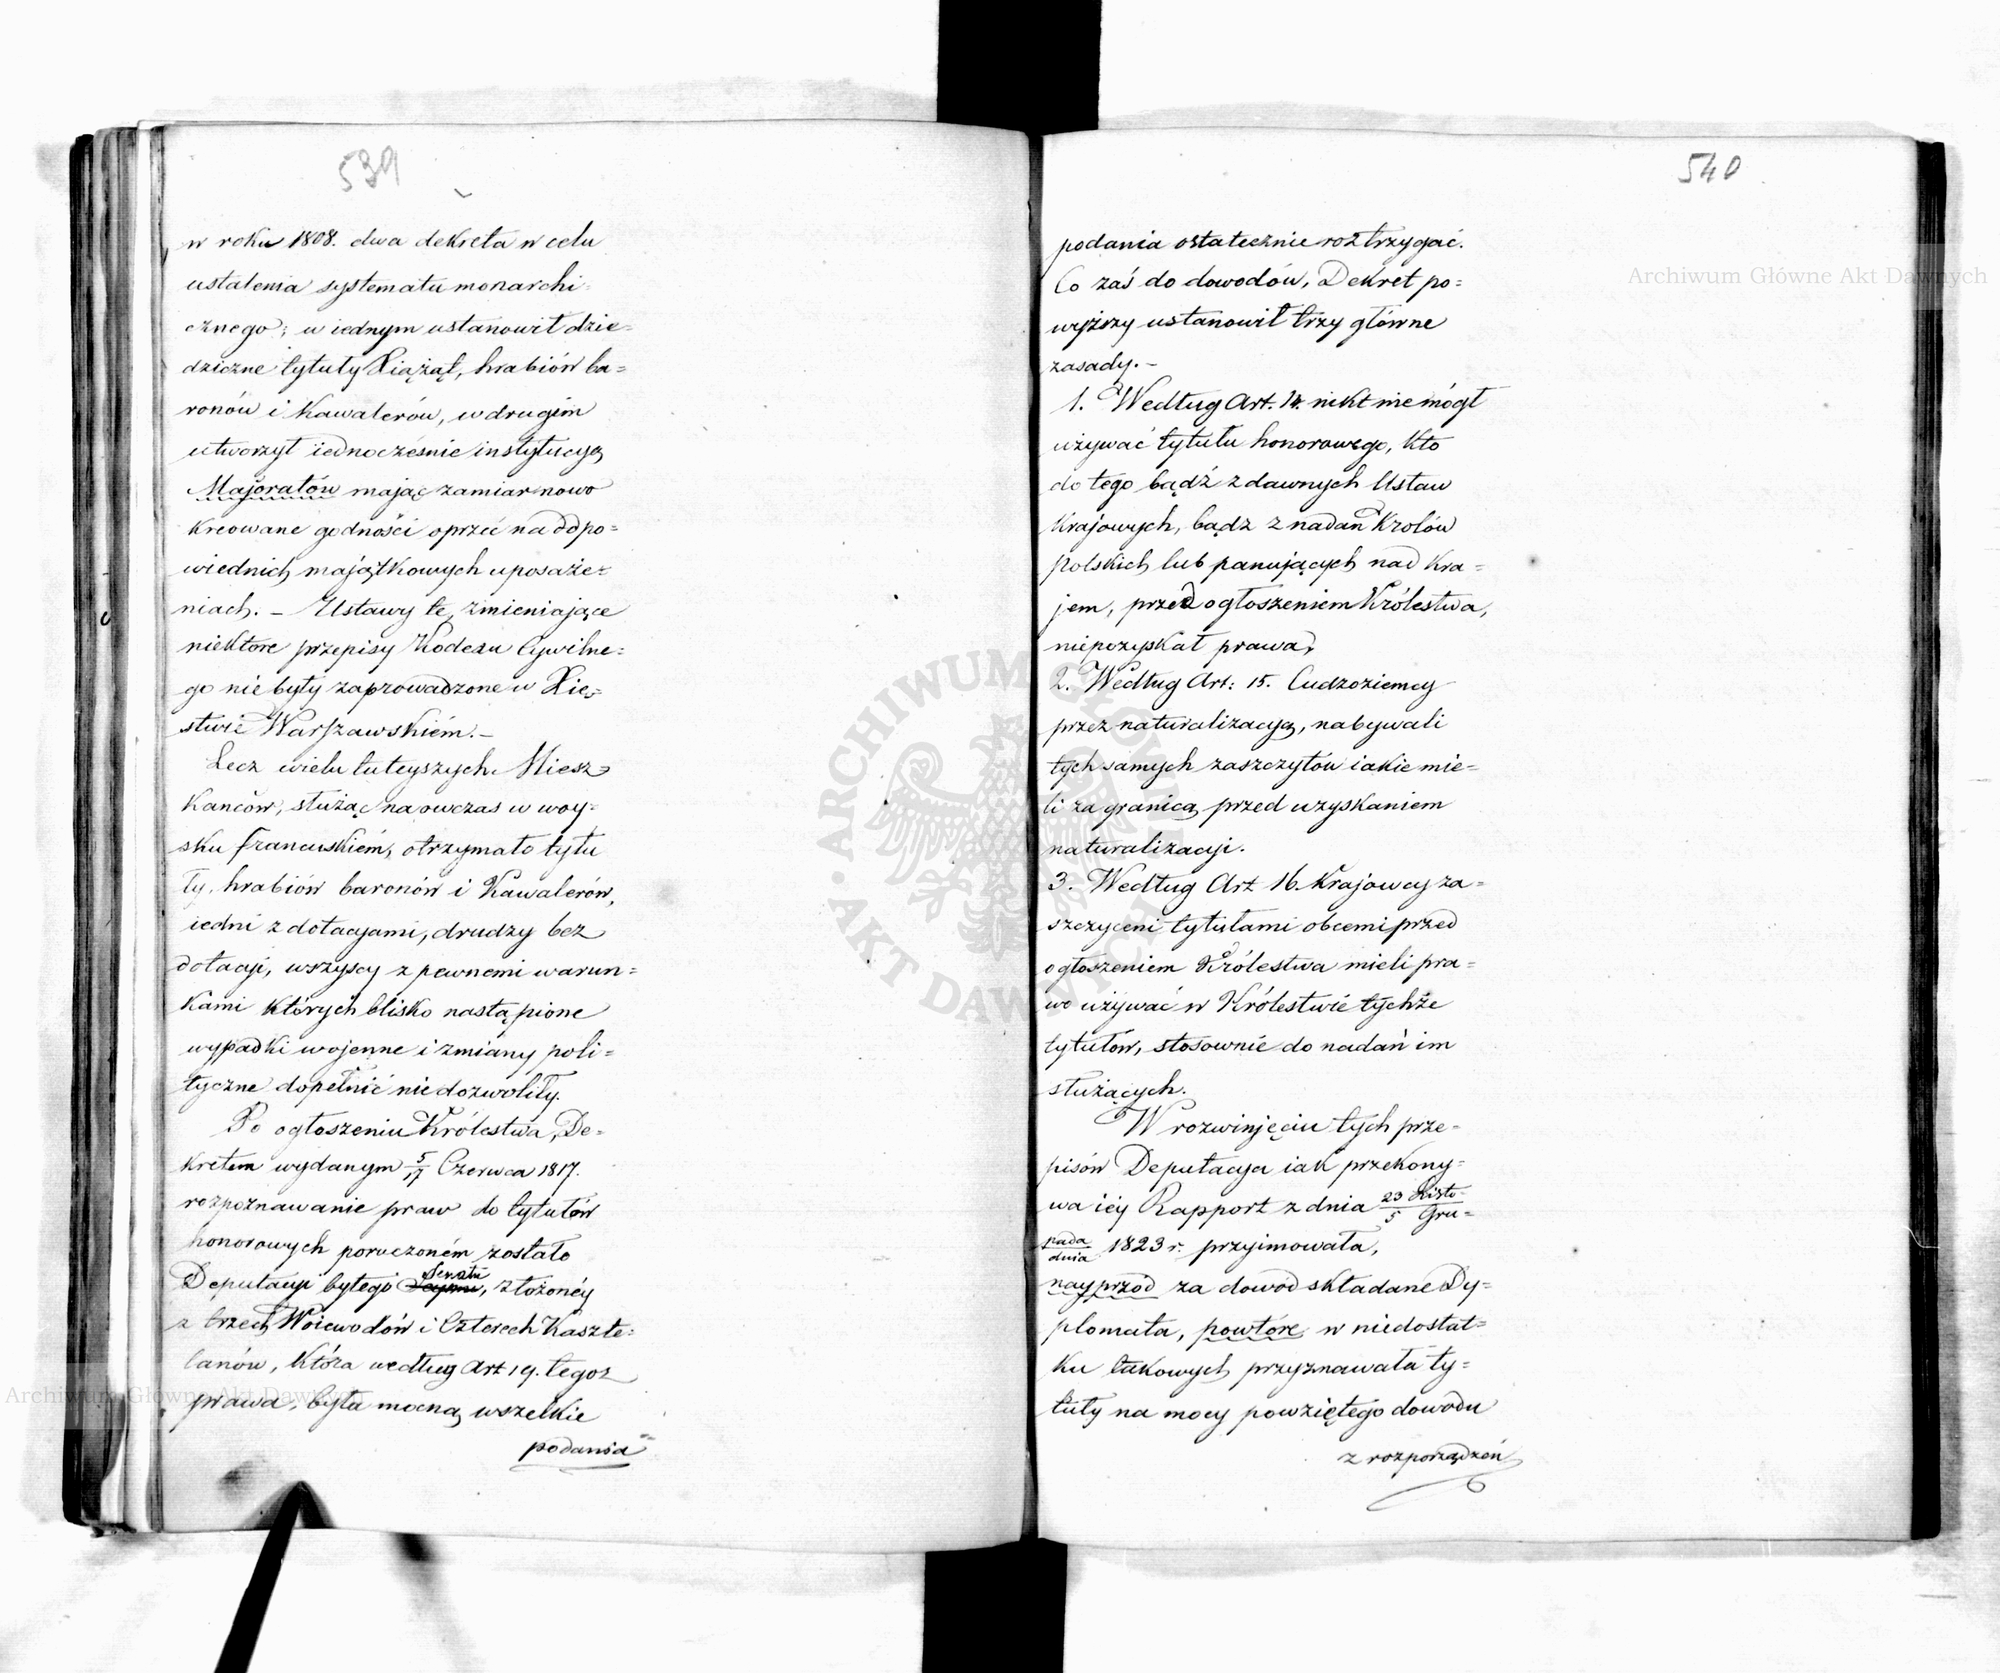 539
w roku 1808. dwa dekreta w celu
ustalenia systematu monarchi=
cznego; w iednym ustanowił dzie=
dziczne tytuły Xiążąt, hrabiów ba=
ronów i Kawalerów, w drugim
utworzył iednocześnie instytucyą
Majoratów mając zamiar nowo
kreowane godności oprzeć na odpo=
wiednich majątkowych uposaże=
niach. – Ustawy te, zmieniające
niektore przepisy Kodexu Cywilne=
go nie były zaprowadzone w Xię=
stwie Warszawskiém. –
Lecz wielu tuteyszych Miesz=
kańców, służąc naowczas w woy=
sku francuskiém, otrzymało tytu
ły, hrabiów baronów i Kawalerów,
iedni z dotacyami, drudzy bez
dotacyi, wszyscy z pewnemi warun=
kami których blisko nastąpione
wypadki wojenne i zmiany poli=
tyczne dopełnić nie dozwoliły.
Po ogłoszeniu Królestwa, De=
kretem wydanym 5/17 Czerwca 1817.
rozpoznawanie praw do tytułów
honorowych poruczoném zostało
Senatu
Deputacyi byłego Seymu, złożonéy
z trzech Woiewodów i Czterech Kaszte=
lanów, która według Art 19. tegoż
prawa, była mocną wszelkie
podania=
540
podania ostatecznie roztrzygać.
Co zaś do dowodów, Dekret po=
wyższy ustanowił trzy główne
zasady. –
1. Według Art. 14. nikt nie mógł
używać tytułu honorowego, kto
do tego bądź z dawnych Ustaw
Krajowych, bądz z nadań Krolów
polskich lub panujących nad Kra=
jem, przed ogłoszeniem Królestwa,
niepozyskał prawa,
2. Według Art: 15. Cudzoziemcy
przez naturalizacyą, nabywali
tych samych zaszczytów iakie mie=
li za granicą przed uzyskaniem
naturalizacyi.
3. Według Art 16. Krajowcy za=
szczyceni tytułami obcemi przed
ogłoszeniem Królestwa mieli pra=
wo używać w Królestwie tychże
tytułów, stosownie do nadań im
służących.
W rozwinjęciu tych prze=
pisów Deputacya iak przekony=
wa iéy Rapport z dnia 23 Listo=/5 Gru=
pada/dnia 1823 r. przyimowała,
nayprzód za dowod składane Dy=
plomata, powtóre w niedostat=
ku takowych przyznawała ty=
tuły na mocy powziętego dowodu
z rozporządzeń
Archiwum Główne Akt Dawnych
Archiwum Główne Akt Dawnych
ARCHIWUM GŁÓWNE · AKT DAWNYCH